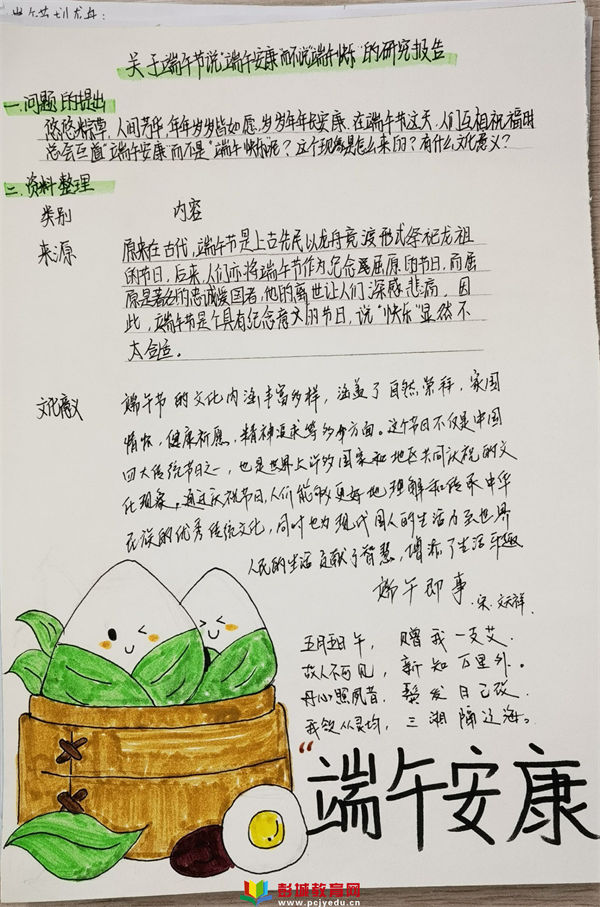 关于端午节说"端午安康"而不说"端午快乐"的研究报告
一.问题的提出
悠悠粽草,人间芳华,年年岁岁皆如愿,岁岁年年长安康.在端午节这天,人们互相祝福时
总会互道"端午安康"而不是"端午快乐"呢?这个现象是怎么来的?有什么文化意义?
二.资料整理
类别 内容
来源 原来在古代,端午节是上古先民以龙舟竞渡形式祭祀龙祖
的节日,后来,人们亦将端午节作为纪念屈原的节日,而屈
原是著名的忠诚爱国者,他的离世让人们深感悲痛。因
此,端午节是个具有纪念意义的节日,说"快乐"显然不
太合适。
文化意义 端午节的文化内涵丰富多样,涵盖了自然崇拜,家国
情怀,健康祈愿,精神追求等多个方面。这个节日不仅是中国
四大传统节日之一,也是世界上许多国家和地区共同庆祝的文
化现象。通过庆祝节日,人们能够更好地理解和传承中华
民族的优秀传统文化,同时也为现代国人的生活乃至世界
人民的生活贡献了智慧,增添了生活乐趣
端午即事
宋.文天祥.
五月五日午,赠我一支艾.
故人不可见,新知万里外。
丹心照夙昔.鬓发日已改.
我欲从灵均,三湘隔辽海。
"端午安康
彭城教育网
www.pcjyedu.cn